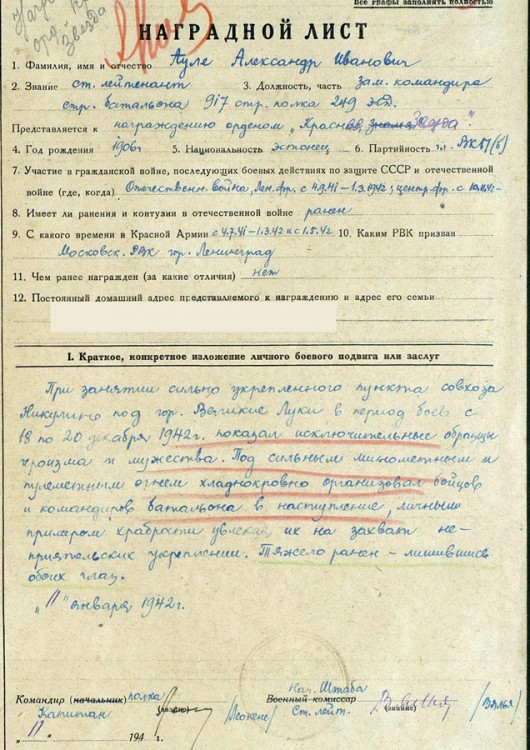 Все графы заполнять полностью
НАГРАДНОЙ ЛИСТ
1. Фамилия, имя и отчество Ауле Александр Иванович
2. Звание ст. лейтенант 3. Должность, часть зам. командира
стр. батальона 917 стр. полка 249 эсд.
Представляется к награждению орденом „Красная Звезда"
4. Год рождения 1906 г 5. Национальность эстонец 6. Партийность ВКП(б)
7. Участие в гражданской войне, последующих боевых действиях по защите СССР и отечественной
войне (где, когда) Отечественн. война, Лен. фр. с 4.9.41 – 1.3.1942; центр. фр. с
8. Имеет ли ранения и контузии в отечественной войне ранен
9. С какого времени в Красной Армии с 4.7.41 – 1.3.42 и с 1.5.42 10. Каким РВК призван
Московск. РВК гор. Ленинград
11. Чем ранее награжден (за какие отличия) нет
12. Постоянный домашний адрес представляемого к награждению и адрес его семьи
I. Краткое, конкретное изложение личного боевого подвига или заслуг
При занятии сильно укрепленного пункта совхоза
Никулино под гор. Великие Луки в период боев с
18 по 20 декабря 1942 г. показал исключительные образцы
героизма и мужества. Под сильным минометным и
пулеметным огнем хладнокровно организовал бойцов
и командиров батальона в наступление, личным
примером храбрости увлекая их на захват не-
приятельских укреплении. Тяжело ранен – лишившись
обоих глаз.
„11" января 1942 г.
Командир (начальник) полка
Капитан
Нач. Штаба
Военный комиссар
Ст. лейт.
(звание)
11 194 г.